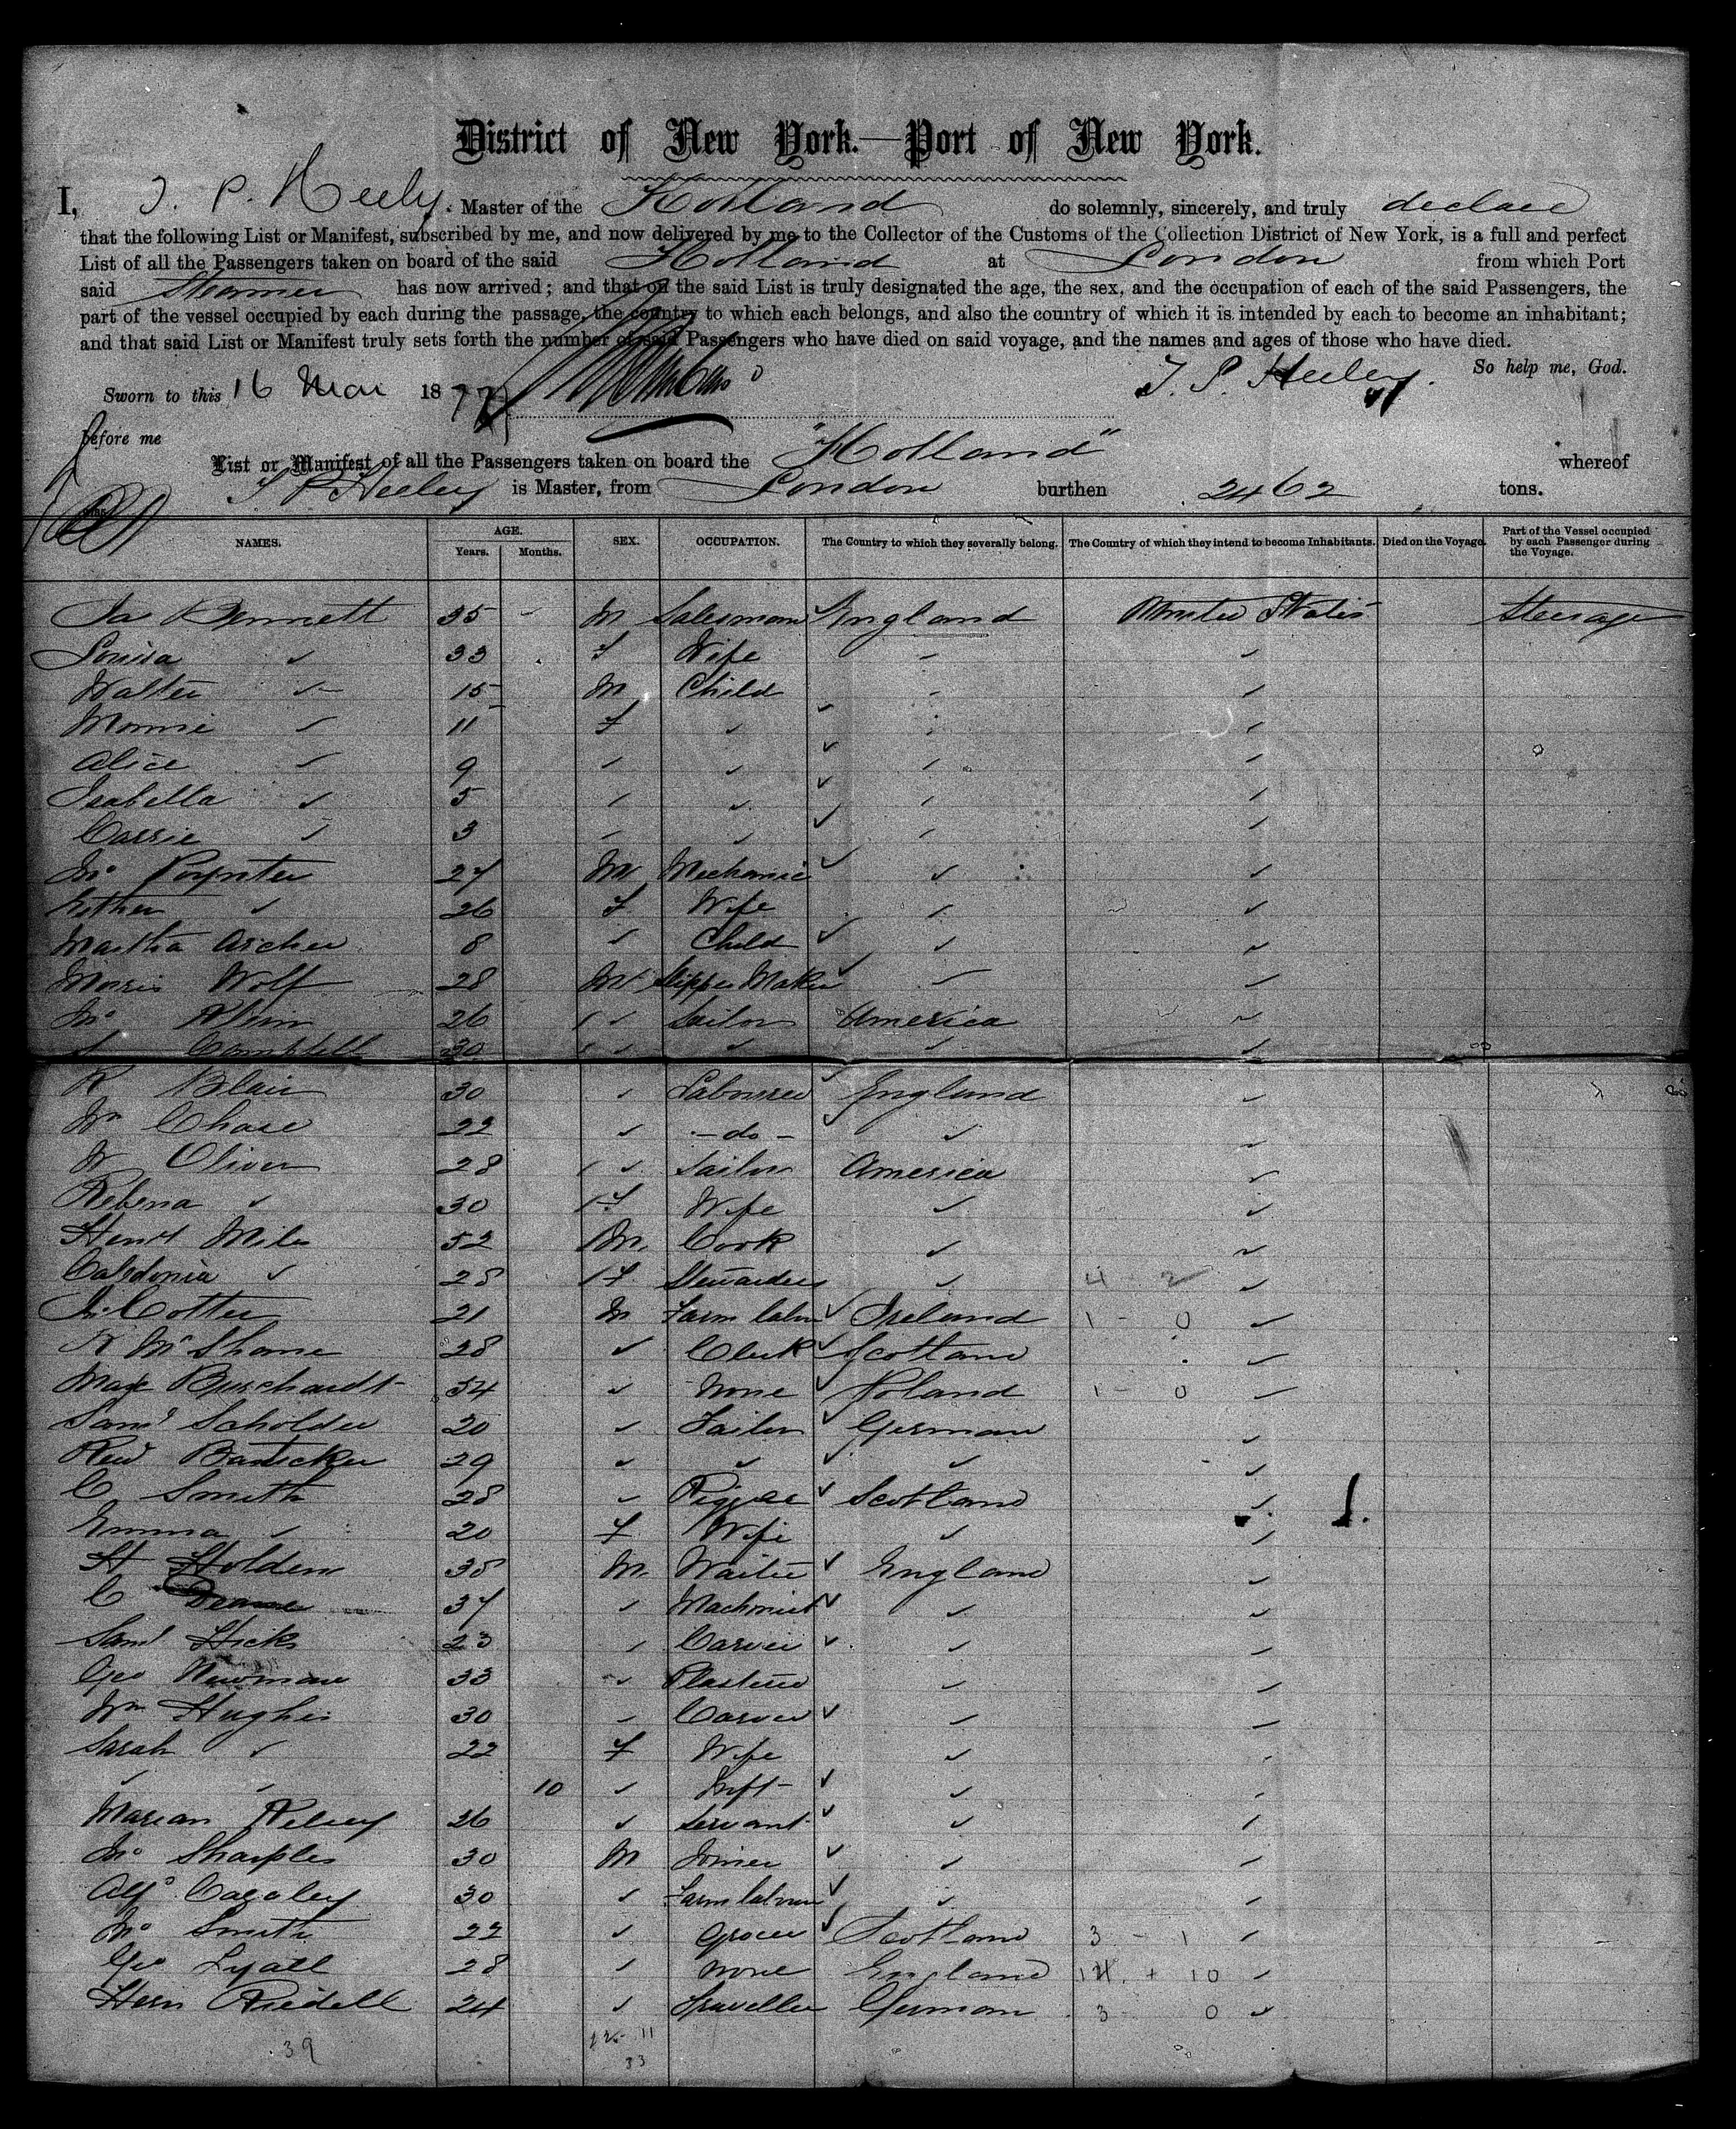 District of New York.—Port of New York.
I, T. P. Heeley. Master of the Holland do solemnly, sincerely, and truly declare
that the following List or Manifest, subscribed by me, and now delivered by me to the Collector of the Customs of the Collection District of New York, is a full and perfect
List of all the Passengers taken on board of the said Holland at London from which Port
said Steamer has now arrived; and that on the said List is truly designated the age, the sex, and the occupation of each of the said Passengers, the
part of the vessel occupied by each during the passage, the country to which each belongs, and also the country of which it is intended by each to become an inhabitant;
and that said List or Manifest truly sets forth the number of said Passengers who have died on said voyage, and the names and ages of those who have died.
So help me, God.
Sworn to this 16 Mai 1877 T. P. Heeley.
before me
List or Manifest of all the Passengers taken on board the "Holland" whereof
T P Heeley is Master, from London burthen 2462 tons.
NAMES. AGE. Years. Months. SEX. OCCUPATION. The Country to which they severally belong. The Country of which they intend to become Inhabitants. Died on the Voyage. Part of the Vessel occupied by each Passenger during the Voyage.
Bennett 35 M Salesman England United States Steerage
Louisa ✓ 33 F Wife
Walter ✓ 15 M Child
Minnie ✓ 11 F
Alice ✓ 9
Isabella ✓ 5
Carrie ✓ 3
Jno Poynter 27 M Mechanic
Esther ✓ 26 F Wife
Martha Archer 8 Child
Morris Wolf 28 M Slipper Maker
Jno 26 Sailor America
Campbell 30
R Blair 30 Labourer England
Wm Chase 22 - do -
W Oliver 28 Sailor America
✓ 30 F Wife
Henry Miles 52 M. Cook
Caledonia ✓ 28 F. Stewardess 4 2
Cotter 21 M Farm labr Ireland 1 - 0
McShane 28 Clerk Scotland
Max Burchardt 34 None Poland 1 - 0
Saml Scholder 20 Tailor German
29
C Smith 28 Rigger Scotland
Emma ✓ 20 F Wife
H Holden 38 M. Waiter England
C 37 Machinist
Saml Hicks 23 Carver
Geo Newman 33 Plasterer
Wm Hughes 30 Carver
Sarah ✓ 22 F Wife
✓ ✓ 10 Inft
Marian Kelsey 26 Servant
Jno Sharples 30 M Joiner
Alfd 30 Farm labourer
Jno Smith 22 Grocer Scotland 3 - 1
Geo Lyall 28 None England 14 + 10
Riedell 24 Traveller German 3 - 0
39 11
33